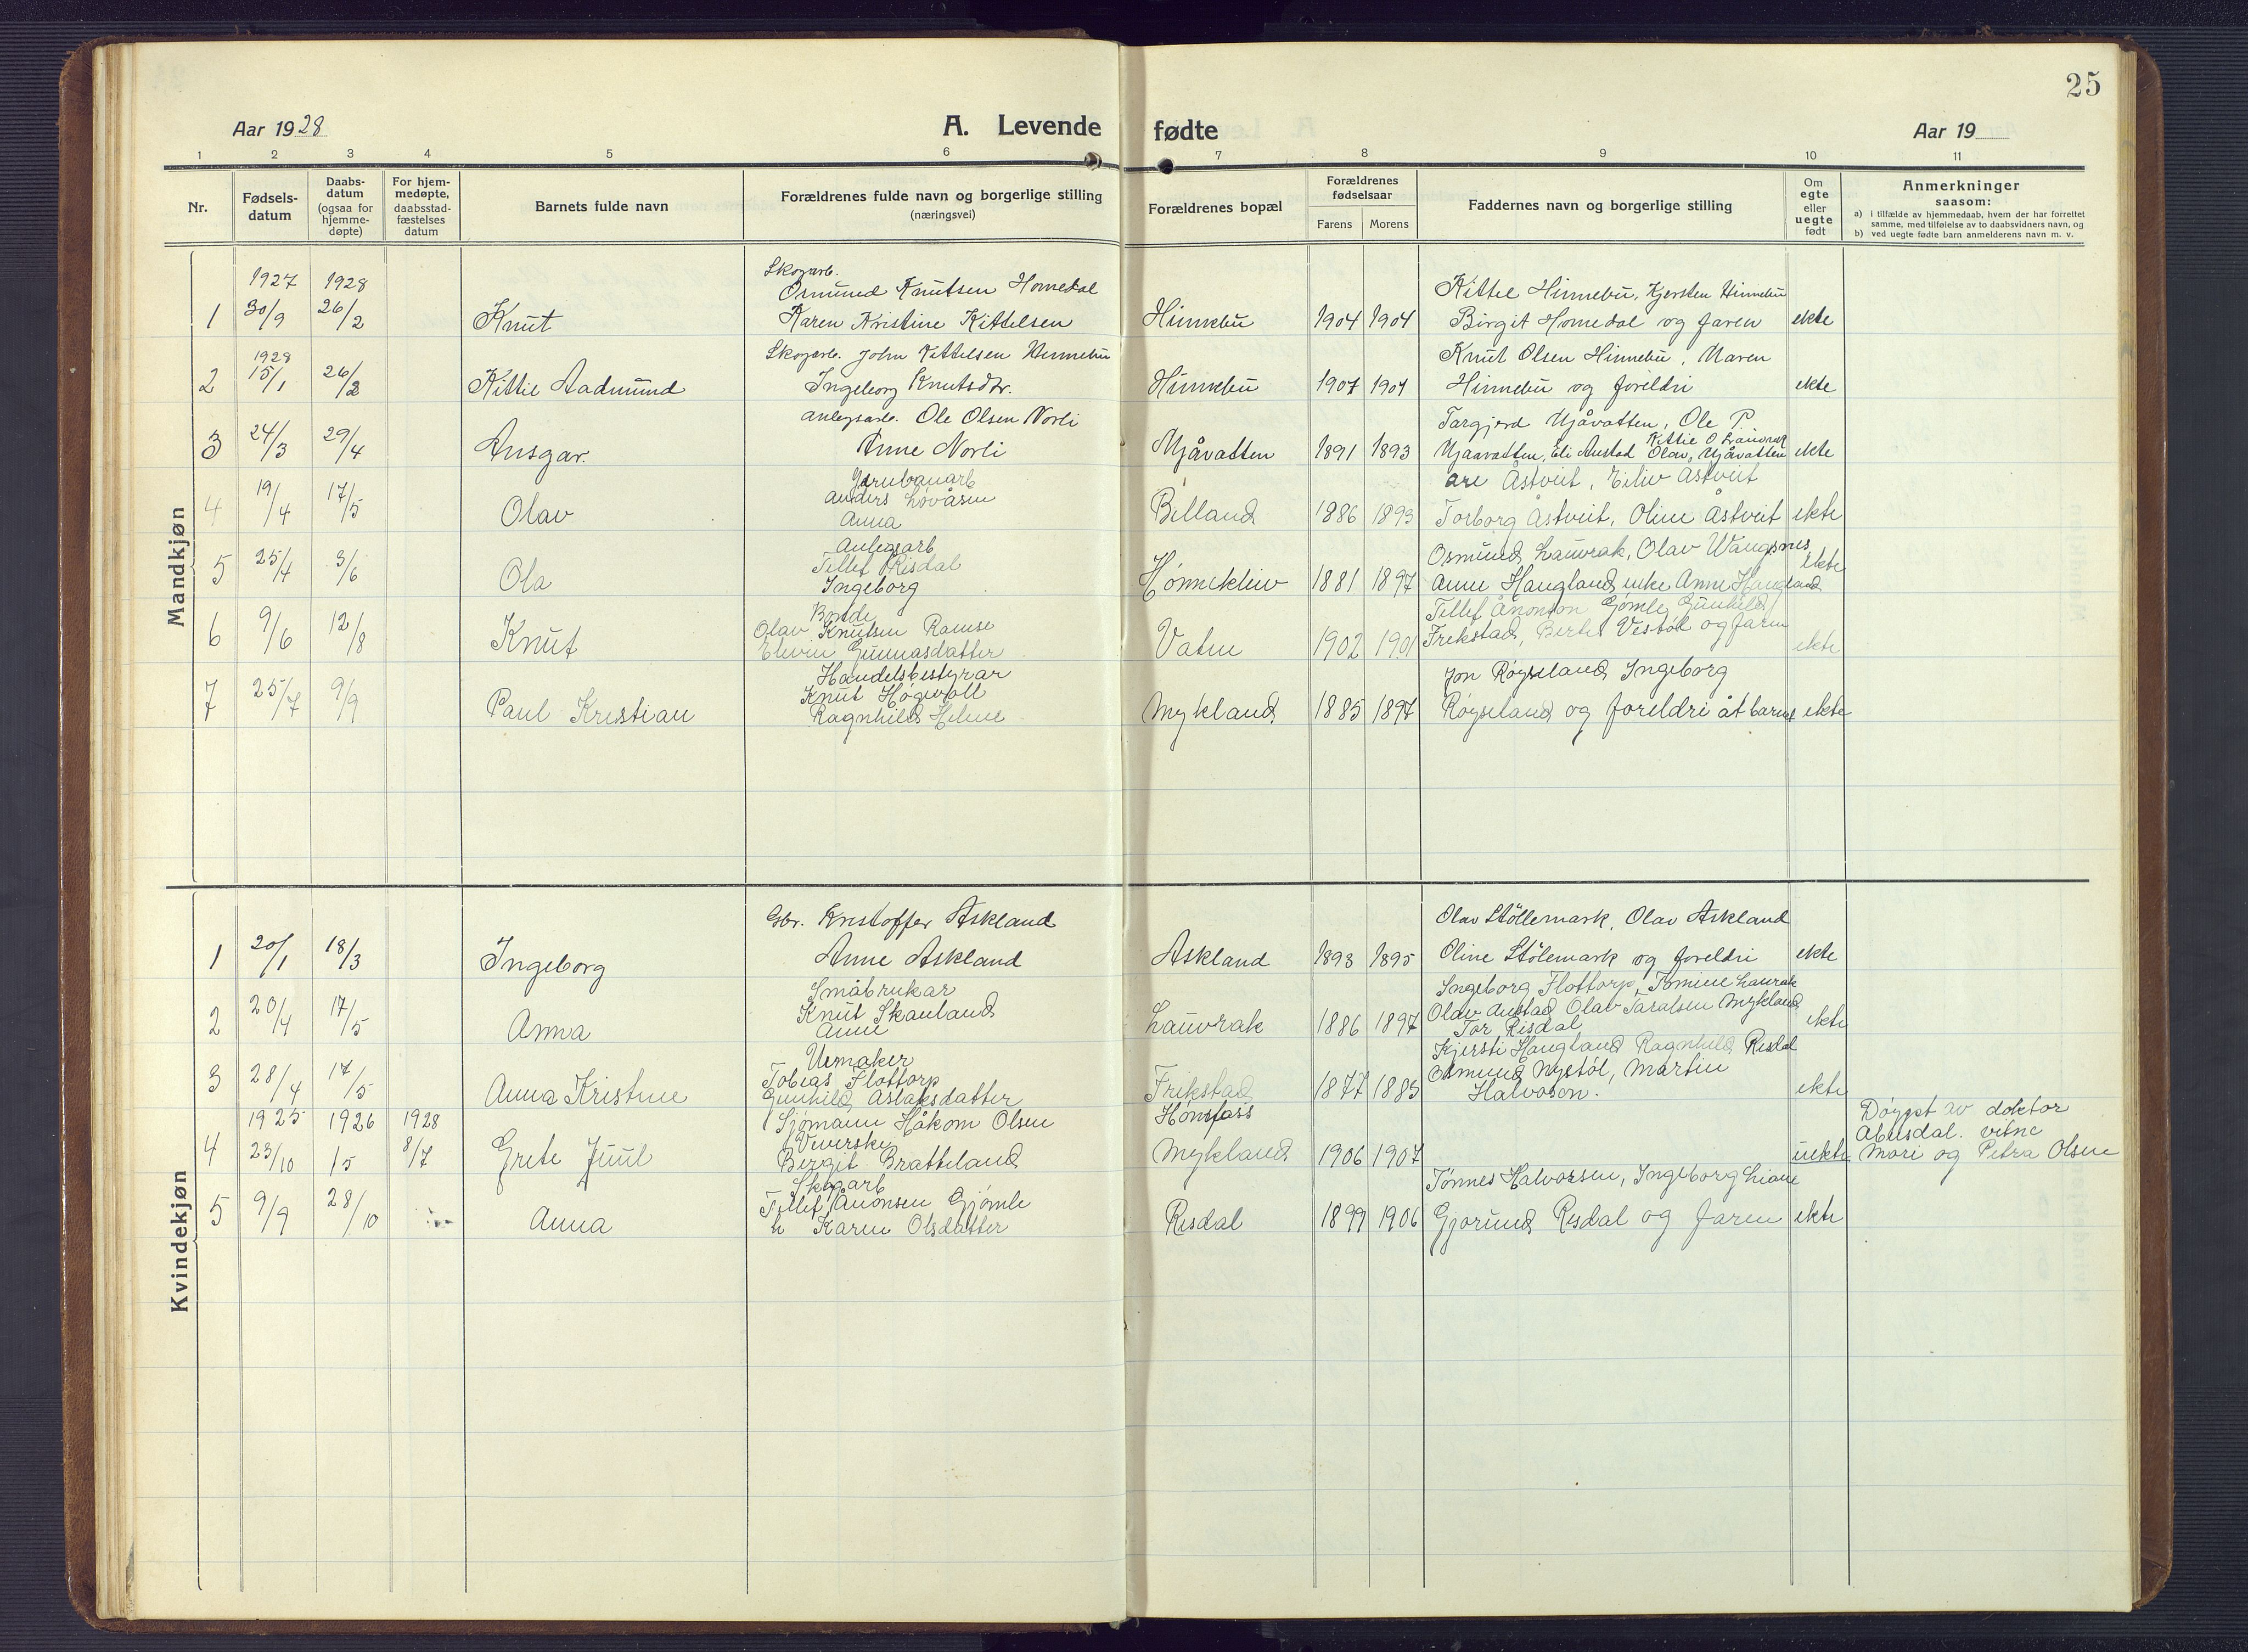 25
Aar 1928
A. Levende fødte
Aar 19
1 2 3 4 5 6 7 8 9 10 11
Nr.
Fødsels-
datum
Daabs-
datum
(ogsaa for
hjemme-
døpte)
For hjem-
medøpte,
daabsstad-
fæstelses
datum
Barnets fulde navn
Forældrenes fulde navn og borgerlige stilling
(næringsvei)
Forældrenes bopæl
Forældrenes
fødselsaar
Farens Morens
Faddernes navn og borgerlige stilling
Om
egte
eller
uegte
født
Anmerkninger
saasom:
a) i tilfælde av hjemmedaab, hvem der har forrettet
samme, med tilføielse av to daabsvidners navn, og
b) ved uegte fødte barn anmelderens navn m. v.
Mandkjøn
Skogarb.
1927 1928 Osmund Knutsen Homedal Kittel Hinnebu, Kjersten Hinnebu
1 30/9 26/2 Knut Karen Kristine Kittelsen Hinnebu 1904 1904 Birgit Homedal og faren ekte
1928 Skogarb. John Kittelsen Hinnebu Knut Olsen Hinnebu, Maren
2 15/1 26/2 Kittil Aadmund Ingeborg Knutsdtr. Hinnebu 1907 1901 Hinnebu og foreldri ekte
anlegsarb. Ole Olsen Norli Targjerd Mjåvatten, Ole P.
Kittil O. Lauvrak
3 24/3 29/4 Ansgar. Anne Norli Mjåvatten 1891 1893 Mjaavatten, Eli Austad Olav, Mjåvatten ekte
Jarnbanarb Are Åstveit, Eiliv Åstveit
Anders Løvåsen
4 19/4 17/5 Olav Anna Belland 1886 1893 Torborg Åstveit, Oline Åstveit ekte
Anlegsarb Osmund Lauvrak, Olav Wangsnes
Tellef Risdal
5 25/4 3/6 Ola Ingeborg Hønnekleiv 1881 1897 Anne Haugland enke Anne Haugland ekte
Bonde Tellef Ånonson Gjømle Gunhild
Olav Knutsen Ramse
6 9/6 12/8 Knut Gunnasdatter Vatne 1902 1901 Frekstad, Bertel Vestøl og faren ekte
Handelsbestyrar Jon Røyseland Ingeborg
Knut Høgevoll
7 25/7 9/9 Paul Kristian Ragnhild Helene Mykland 1885 1897 Røyseland og foreldri åt barnet ekte
Kvindekjøn
Gbr. Kristoffer Askland Olav Stöllemark, Olav Askland
1 20/1 18/3 Ingeborg Anne Askland Askland 1893 1895 Oline Stölemark og foreldri ekte
Småbrukar Ingeborg Flottorp, Tomine Lauvrak
Knut Skauland Olav Austad Olav Taralsen Mykland
2 20/4 17/5 Anna Anne Lauvrak 1886 1897 Tor Risdal ekte
Urmaker Kjersti Haugland Ragnhild Risdal
Tobias Flottorp Osmund Nystøl, Martin
3 28/4 17/5 Anna Kristine Gunhild Aslaksdatter Frikstad 1877 1885 Halvoson. ekte
1925 1926 1928 Sjømann Håkom Olsen Honsfass Døypt av doktor
Veverske Abusdal. vitne
4 23/10 15 8/7 Grete Juul Bergit Bratteland Mykland 1906 1907 uekte Mari og Petra Olsen
Skogarb Tønnes Halvorsen, Ingeborg Liane
Tellef Ånonsen Gjømle
5 9/9 28/10 Anna h Karen Olsdatter Risdal 1899 1906 Gjorund Risdal og faren ekte